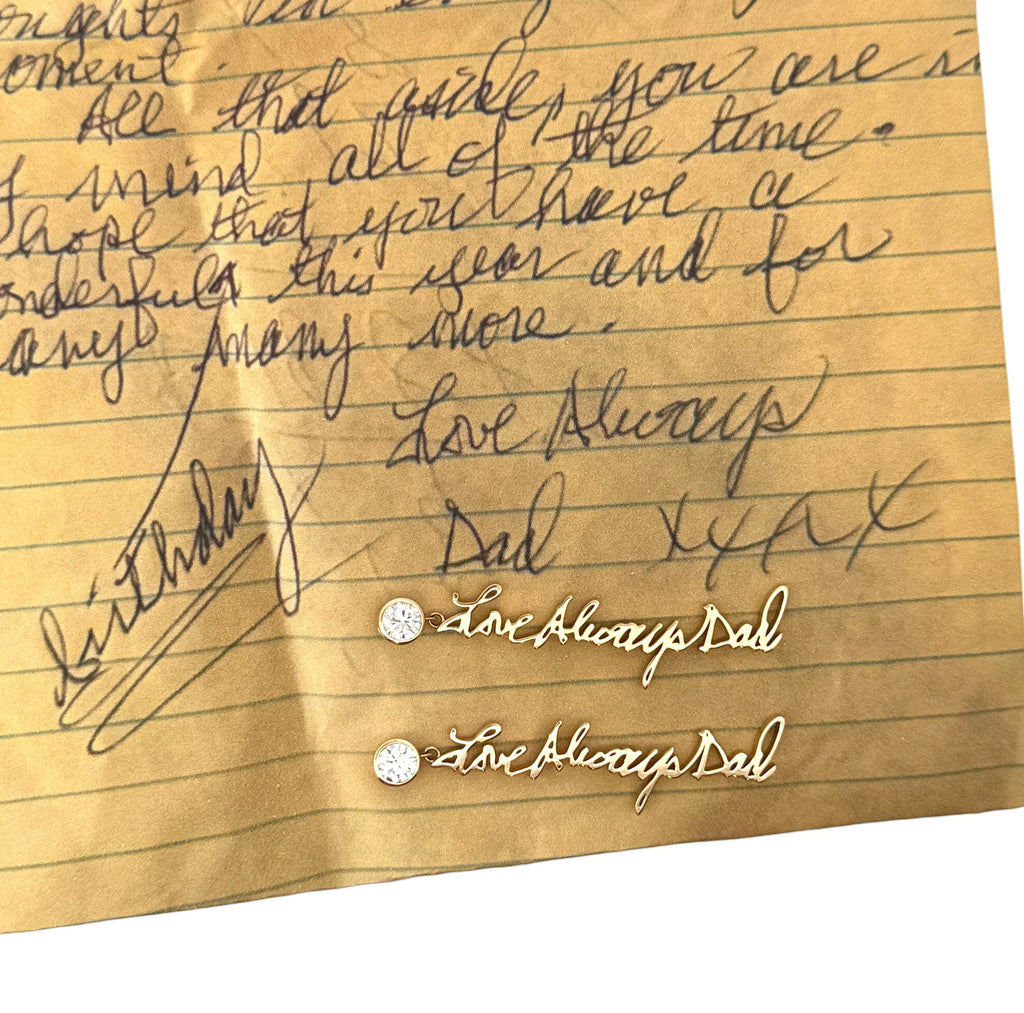 oughts in
oment.
All that aside, you are in
mind all of the time.
hope that you have a
onderful this year and for
any many more.
Love Always
Dad XXXX
birthday
Love Always Dad
Love Always Dad